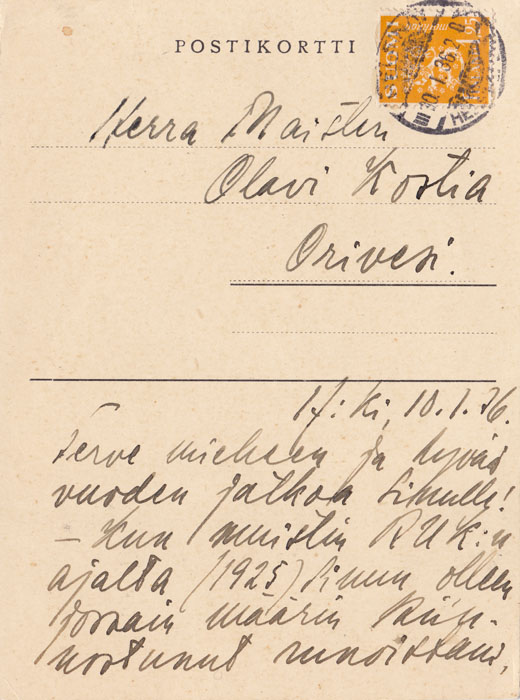 POSTIKORTTI
Herra Maisteri
Olavi Kostia
Orivesi.
H:ki, 10.1.36.
Terve mieheen ja hyvää
vuoden jatkoa Sinulle!
— Kun muistin RUK:n
ajalta (1925) Sinun olleen
jossain määrin kiin-
nostunut runoistani,